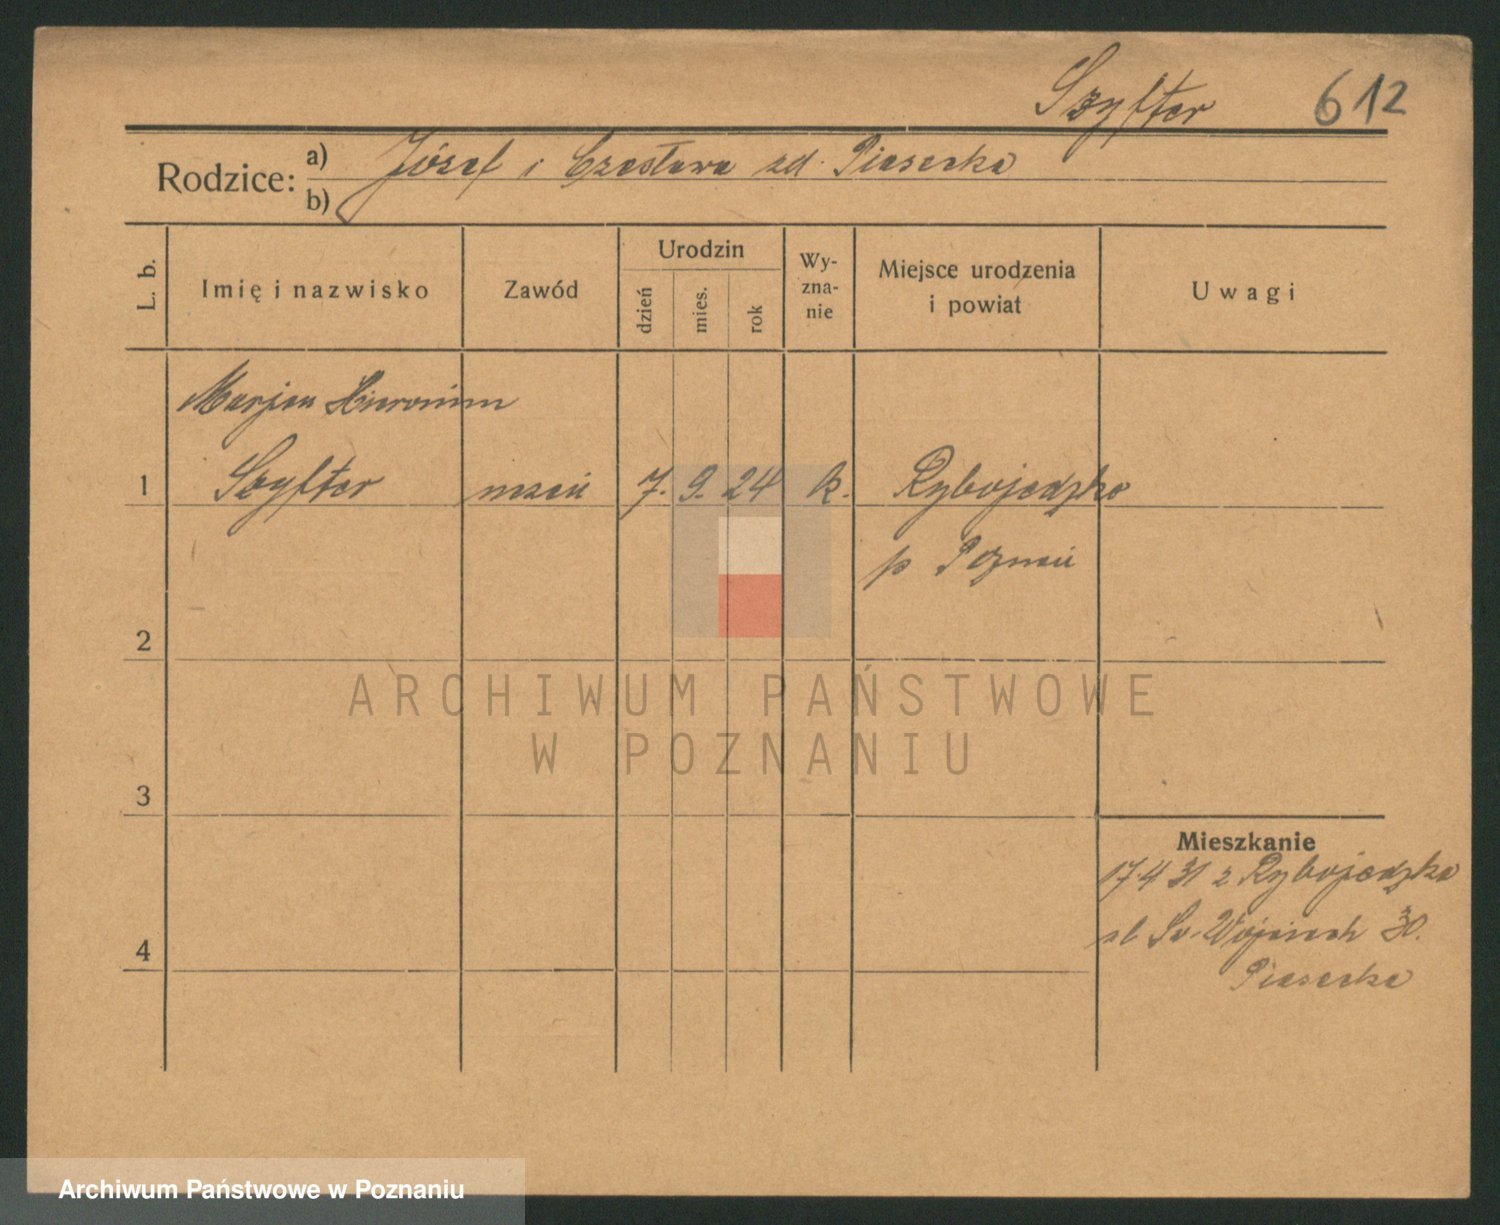 Szyfter 612
Rodzice: a) Józef i Czesława zd. Piasecka
b)
L. b.
Imię i nazwisko
Zawód
Urodzin
dzień
mies.
rok
Wy-
zna-
nie
Miejsce urodzenia
i powiat
Uwagi
Marjan Hieronim
1 Szyfter uczeń 7. 9. 24 k. Rybojedzko
p Poznań
2
3
4
Mieszkanie
17.4 31 z Rybojedzka
ul Św. Wojciech 30.
Piasecka
ARCHIWUM PAŃSTWOWE
W POZNANIU
Archiwum Państwowe w Poznaniu